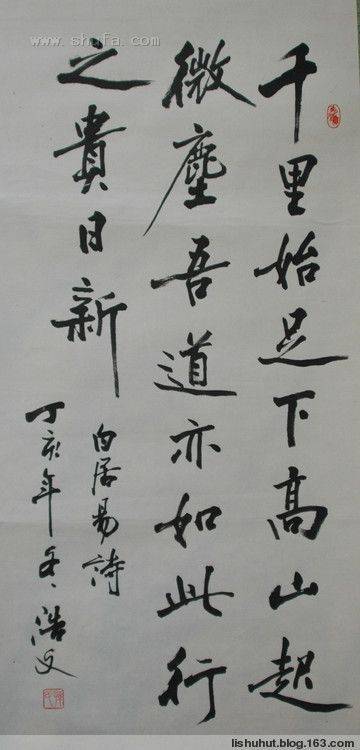 千里始足下高山起
微塵吾道亦如此行
之貴日新
白居易詩
丁亥年冬浩文
www.shufa.com
lishuhut.blog.163.com